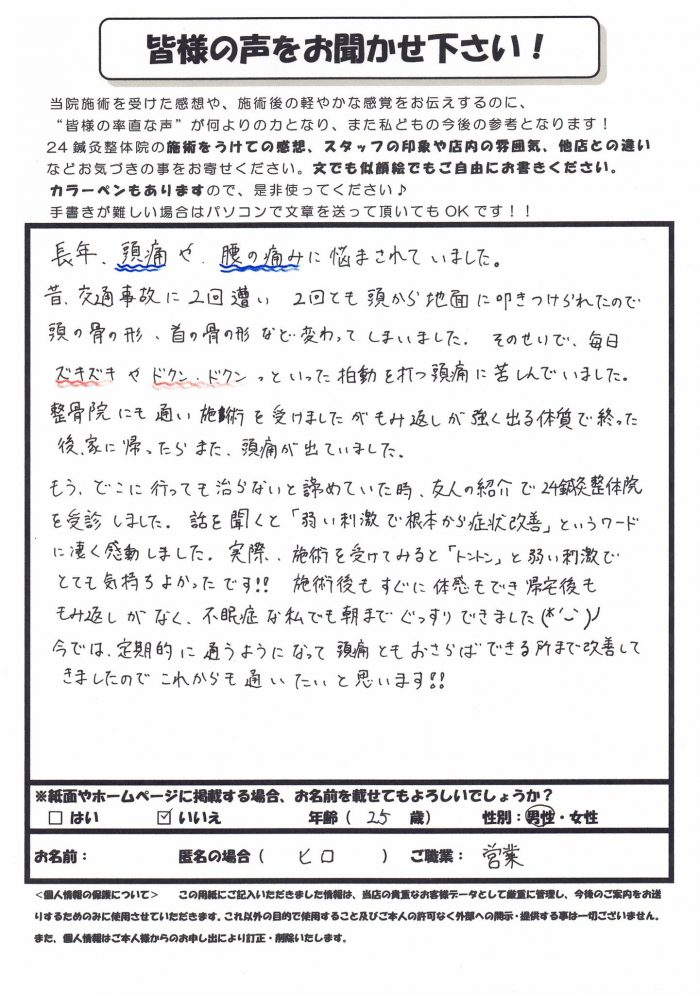 皆様の声をお聞かせ下さい！
当院施術を受けた感想や、施術後の軽やかな感覚をお伝えするのに、
“皆様の率直な声”が何よりの力となり、また私どもの今後の参考となります！
24鍼灸整体院の施術をうけての感想、スタッフの印象や店内の雰囲気、他店との違い
などお気づきの事をお寄せください。文でも似顔絵でもご自由にお書きください。
カラーペンもありますので、是非使ってください♪
手書きが難しい場合はパソコンで文章を送って頂いてもOKです！！
長年、頭痛や、腰の痛みに悩まされていました。
昔、交通事故に2回遭い 2回とも頭から地面に叩きつけられたので
頭の骨の形、首の骨の形など変わってしまいました。そのせいで、毎日
ズキズキやドクン、ドクンっといった拍動を打つ頭痛に苦しんでいました。
整骨院にも通い施術を受けましたがもみ返しが強く出る体質で終った
後、家に帰ったらまた、頭痛が出ていました。
もう、どこに行っても治らないと諦めていた時、友人の紹介で24鍼灸整体院
を受診しました。話を聞くと「弱い刺激で根本から症状改善」というワード
に凄く感動しました。実際、施術を受けてみると「トントン」と弱い刺激で
とても気持ちよかったです!! 施術後もすぐに体感もでき帰宅後も
もみ返しがなく、不眠症な私でも朝までぐっすりできました(*'⌣')ノ
今では、定期的に通うようになって頭痛ともおさらばできる所まで改善して
きましたのでこれからも通いたいと思います!!
※紙面やホームページに掲載する場合、お名前を載せてもよろしいでしょうか？
□ はい ☑ いいえ 年齢（ 25 歳） 性別：男性・女性
お名前： 匿名の場合（ ヒロ ） ご職業： 営業
＜個人情報の保護について＞ この用紙にご記入いただきました情報は、当店の貴重なお客様データとして厳重に管理し、今後のご案内をお送
りするためのみに使用させていただきます。これ以外の目的で使用すること及びご本人の許可なく外部への開示・提供する事は一切ございません。
また、個人情報はご本人様からのお申し出により訂正・削除いたします。